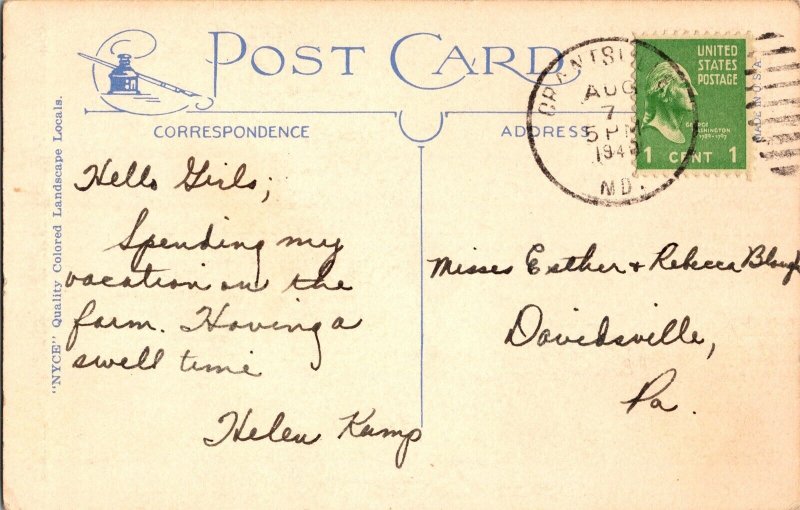 POST CARD
CORRESPONDENCE
ADDRESS
"NYCE" Quality Colored Landscape Locals.
MADE IN U.S.A.
AUG
7
5 PM
MD.
UNITED
STATES
POSTAGE
GEORGE
WASHINGTON
1789-1797
1 CENT 1
Hello Girls;
Spending my
vacation on the
farm. Having a
swell time
Helen Kamp
Misses Esther + Rebecca
Davidsville,
Pa.